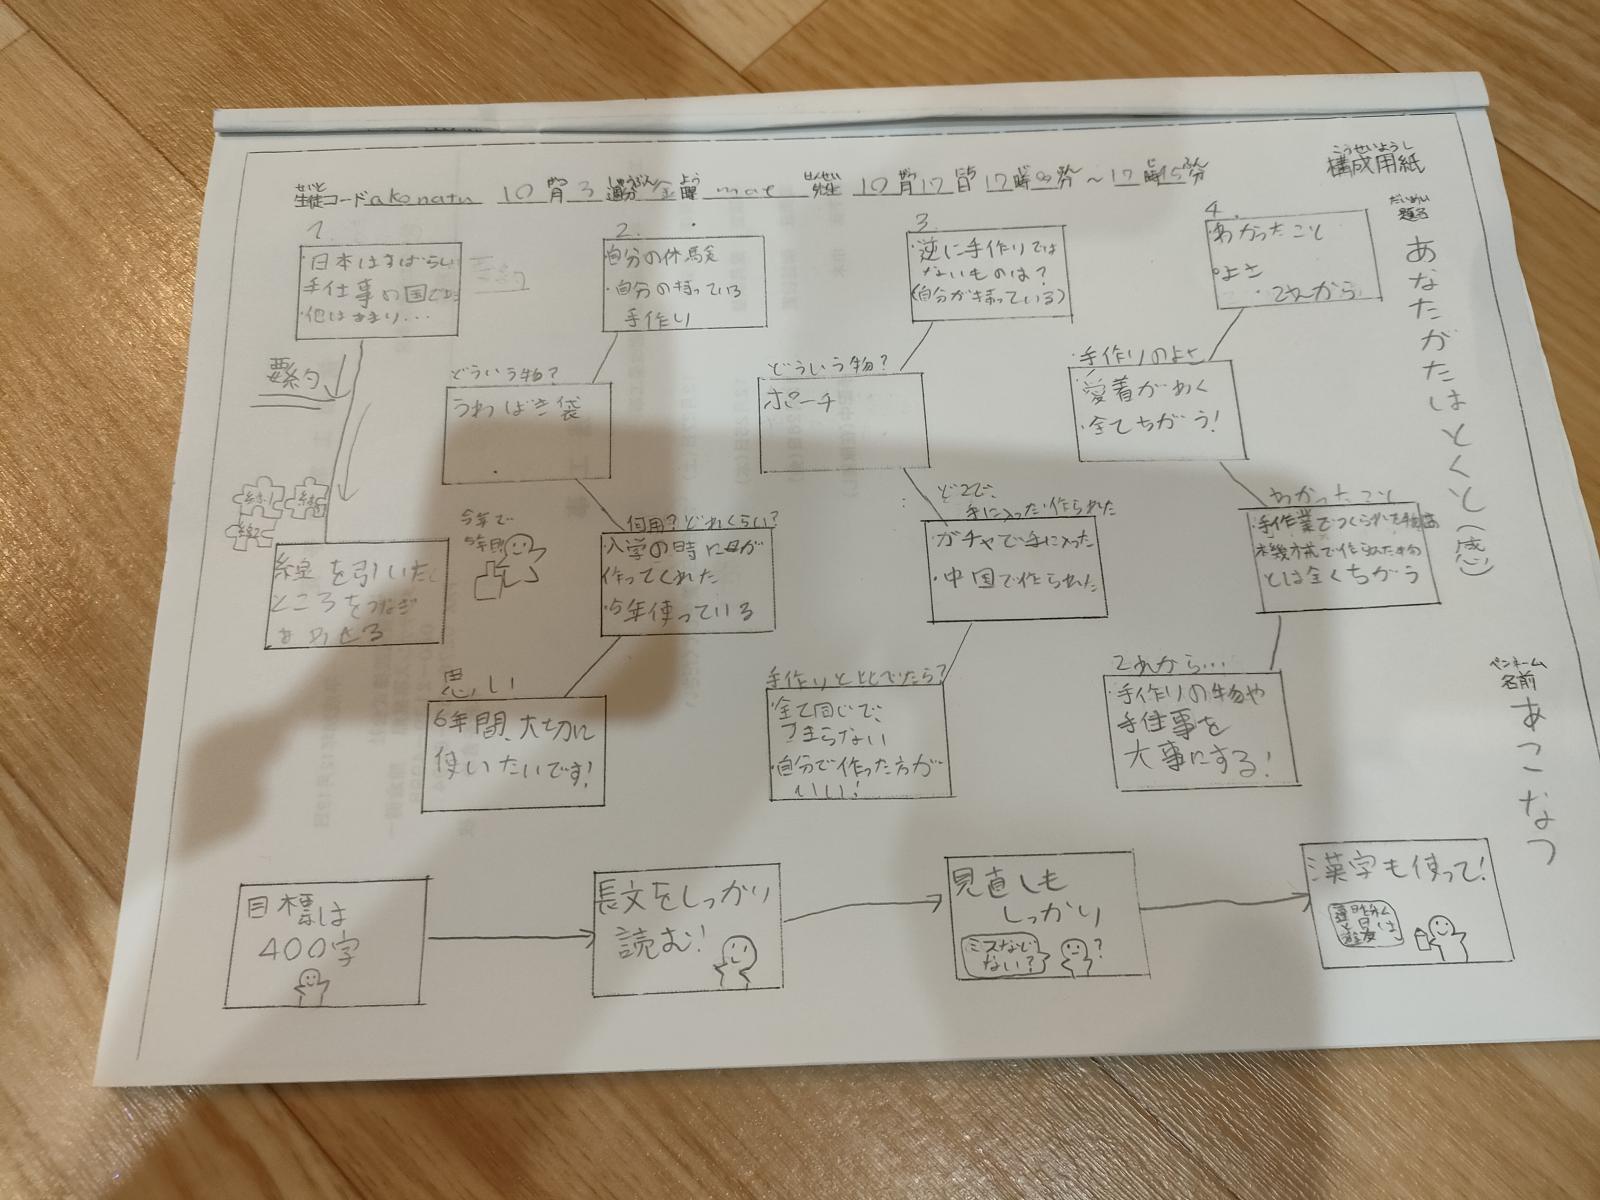 構成用紙
こうせいようし
生徒コード akonatu 10月3週分金曜 mat 先生 10月17日17時00分～17時45分
だいめい
題名
あなたがたはとくと(感)
ペンネーム
名前
あこなつ
1.
・日本はすばらしい
手仕事の国である
・他はあまり…
要約
線1
線を引いた
ところをつなぎ
あわせる
2.
自分の体験
・自分の持っている
手作り
どういう物?
うわばき袋
今年で
5年目
何用?どれくらい?
・入学の時に母が
作ってくれた
・5年使っている
思い
6年間、大切に
使いたいです!
3.
・逆に手作りでは
ないものは?
(自分が持っている)
どういう物?
ポーチ
どこで、
手に入った・作られた
・ガチャで手に入った
・中国で作られた
手作りと比べたら?
・全て同じで、
つまらない
・自分で作った方が
いい!
4.
・わかったこと
・よさ
・これから
・手作りのよさ
・愛着がわく
・全てちがう!
わかったこと
・手作業でつくられた物は
機械で作られた物
とは全くちがう
これから…
・手作りの物や
手仕事を
大事にする!
目標は
400字
長文をしっかり
読む!
見直しも
しっかり
ミスなどない?
?
漢字も使って!